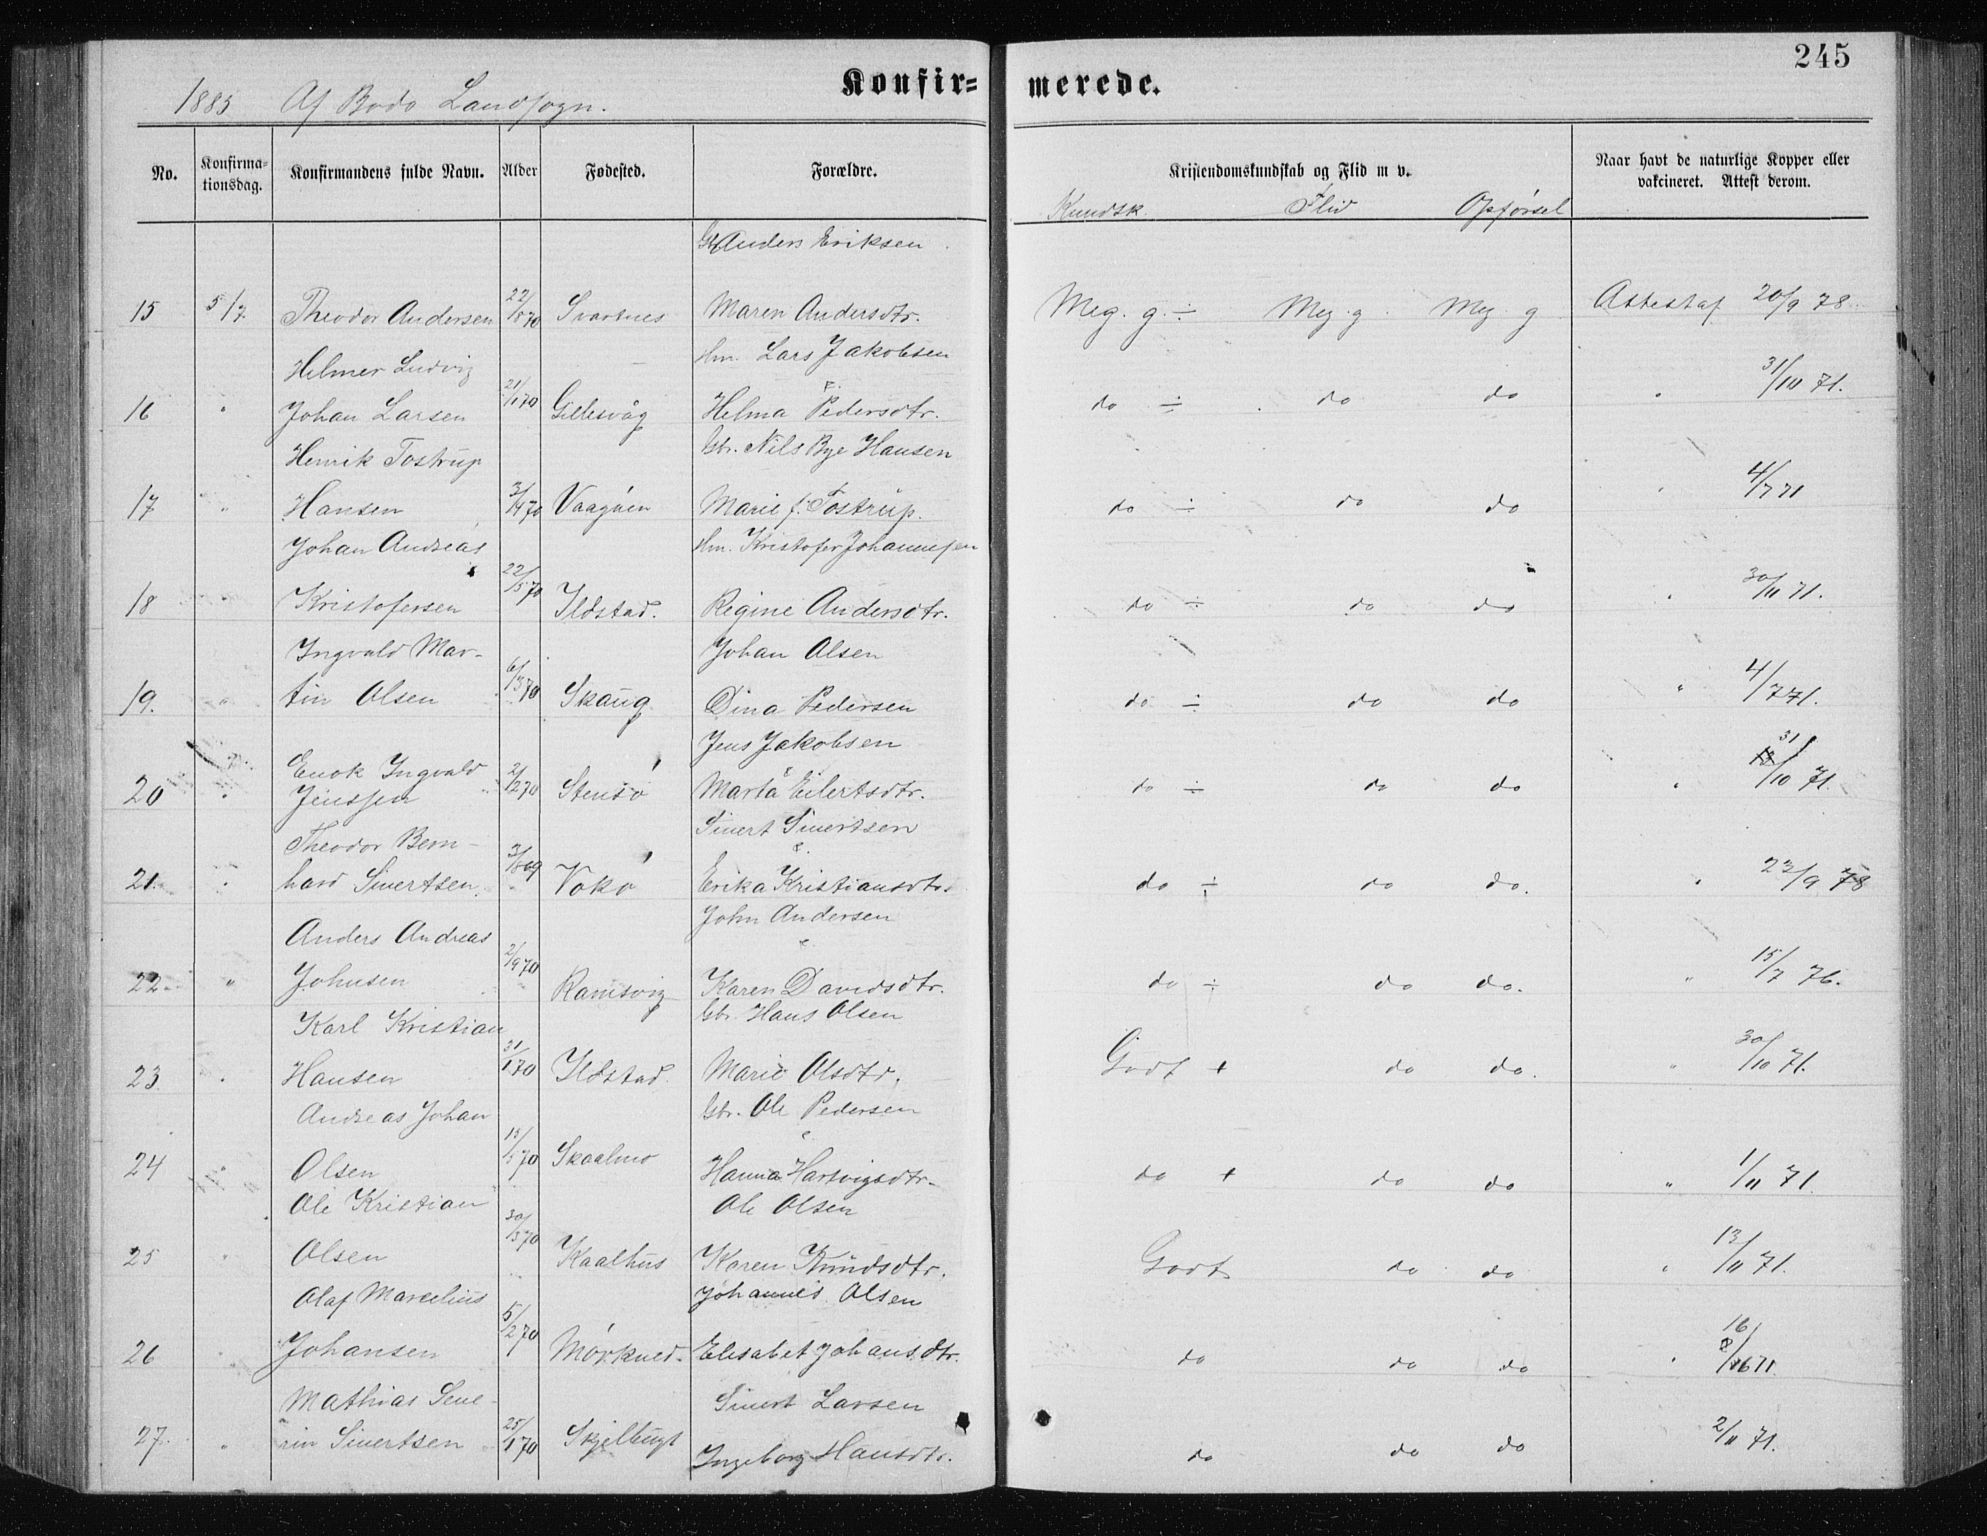 245
Konfir-
merede.
1885 Af Bodø Landsogn.
No.
Konfirma-
tionsdag.
Konfirmandens fulde Navn.
Alder
Fødested.
Forældre.
Kristendomskundskab og Flid m v.
Naar havt de naturlige Kopper eller
vakcineret. Attest derom.
Kundsk. Flid Opførsel
Anders Eriksen
15 5/7 Theodor Andersen 22/8 70 Svartnes Maren Andersdtr. Meg. g. ÷ Meg. g. Meg. g Attest af 20/9 78.
Helmer Ludvig Hm. Lars Jakobsen
16 " Johan Larsen 21/1 70 Gillesvåg Helma Pedersdtr. do ÷ do do " 31/10 71.
Henrik Tostrup Gbr. Nils Bye Hansen
17 " Hansen Vaagøen Marie f. Tostrup. do ÷ do do " 4/7 71
Johan Andreas Hm. Kristofer Johannesen
18 " Kristofersen 22/5 70 Ildstad. Regine Andersdtr. do ÷ do do " 30/11 71.
Ingvald Mar- Johan Olsen
19. " tin Olsen 6/3 70 Skaug Dina Pedersen do ÷ do do " 4/7 71.
Enok Ingvald Jens Jakobsen
20 " Jenssen 2/2 70 Stensø Marta Eilertsdtr. do ÷ do do " 31/10 71.
Theodor Bern- Sivert Sivertsen
21. " hard Sivertsen 3/8 69 Vokø Erika Kristiansdtr. do ÷ do do. " 22/9 78
Anders Andreas John Andersen
22 " Johnsen 2/9 70 Ramsvig Karen Davidsdtr. do ÷ do do. " 15/7 76.
Karl Kristian Gbr. Hans Olsen
23 " Hansen 31/1 70 Ildstad. Marie Olsdtr. Godt + do do. " 30/10 71.
Andreas Johan Gbr. Ole Pedersen
24 " Olsen Skaalmo Hanna Hartvigsdtr. do + do do " 1/11 71.
Ole Kristian Ole Olsen
25 " Olsen 30/5 70 Kaalhus Karen Knudsdtr. Godt do do " 13/11 71.
Olaf Marcelius Johannes Olsen
26 " Johansen 5/2 70 Mørkved. Elisabet Johansdtr. do do do "
Mathias Seve- Sivert Larsen
27. " rin Sivertsen 25/1 70 Skjelbugt Ingeborg Hansdtr. do do do 2/11 71.